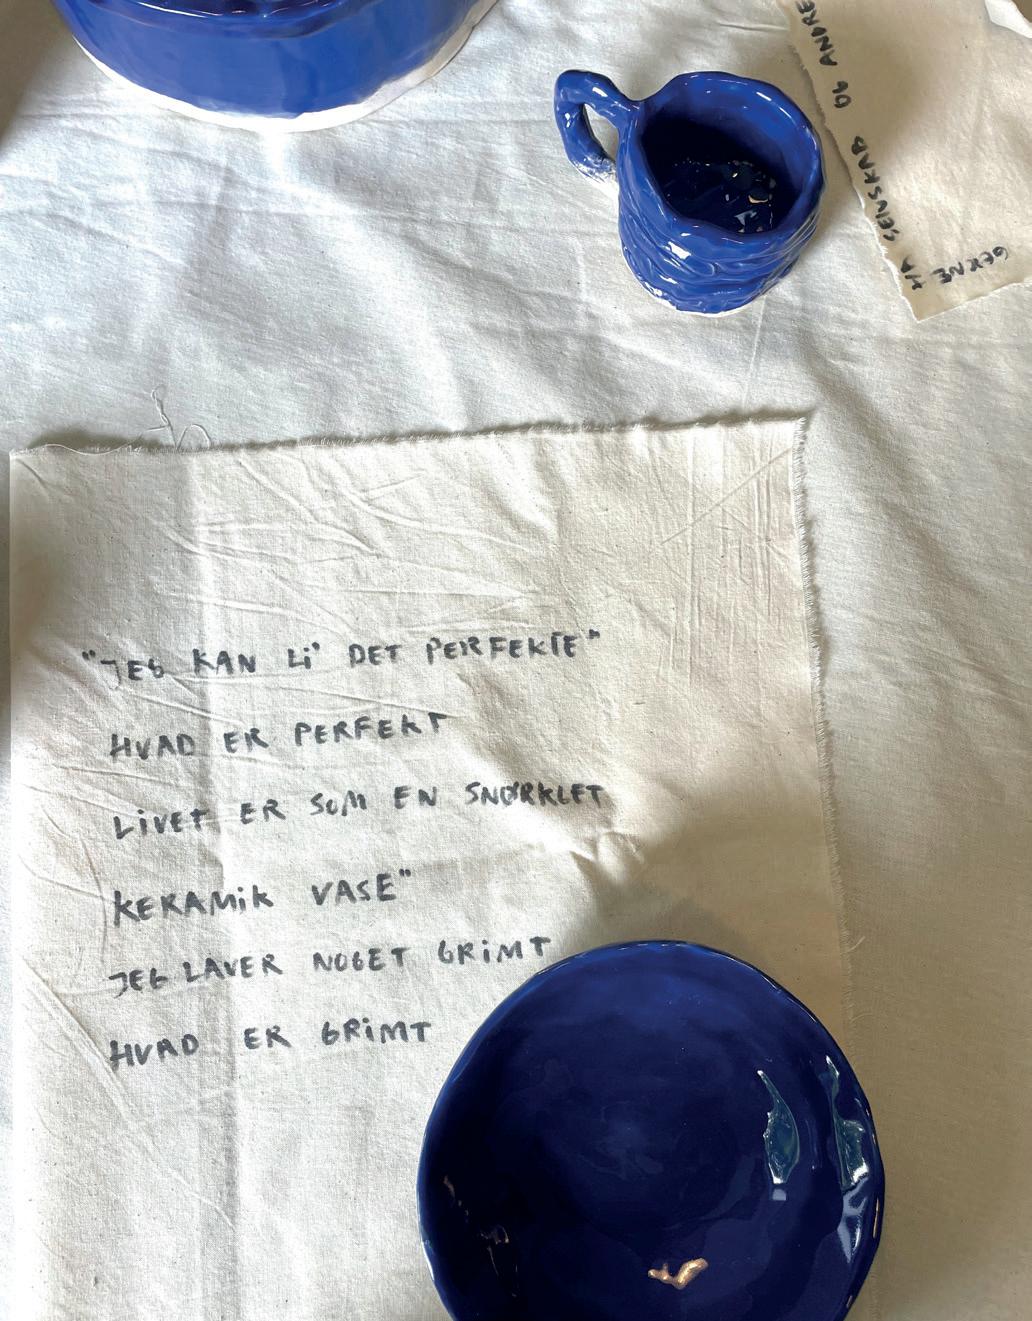 "JEG KAN Li' DET PERFEKTE"
HVAD ER PERFEKT
LiVET ER SOM EN SNØRKLET
KERAMiK VASE"
JEG LAVER NOGET GRiMT
HVAD ER GRiMT
OG ANDRE
HA SELVSKAB
GERNE